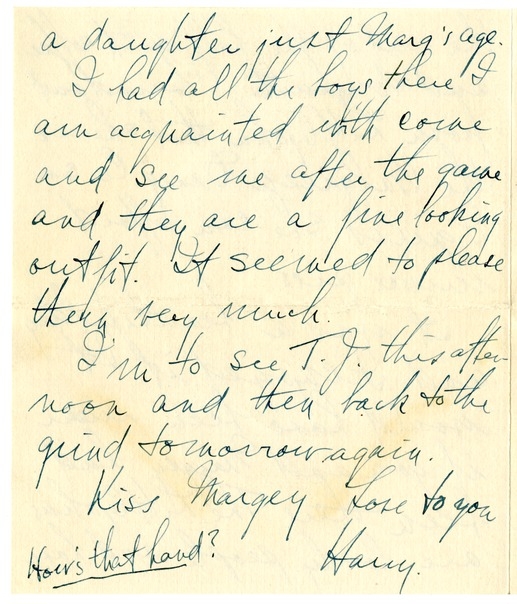 a daughter just Marg's age.
I had all the boys there I
am acquainted with come
and see me after the game
and they are a fine looking
outfit. It seemed to please
them very much.
I'm to see T. J. this after-
noon and then back to the
grind tomorrow again.
Kiss Margey Love to you
How's that hand? Harry.